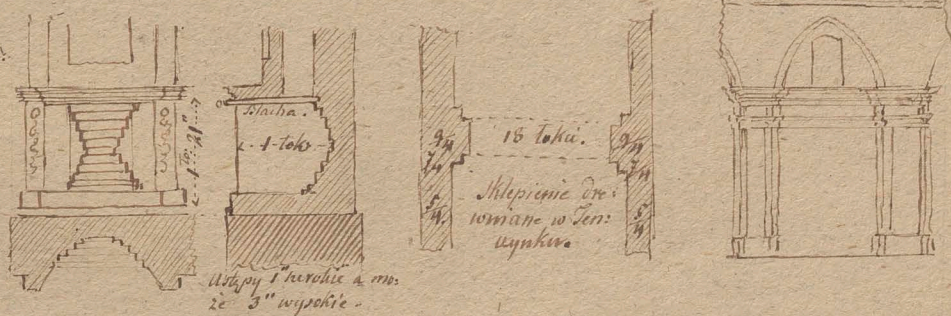 1 ło: 21"
Blacha.
1 łok:
Ustępy 1" szerokie a mo:
że 3" wysokie.
9/4
7/4
5/4
18 łokci.
9/4
7/4
5/4
Sklepienie dre:
wniane w Ten:
czynku.